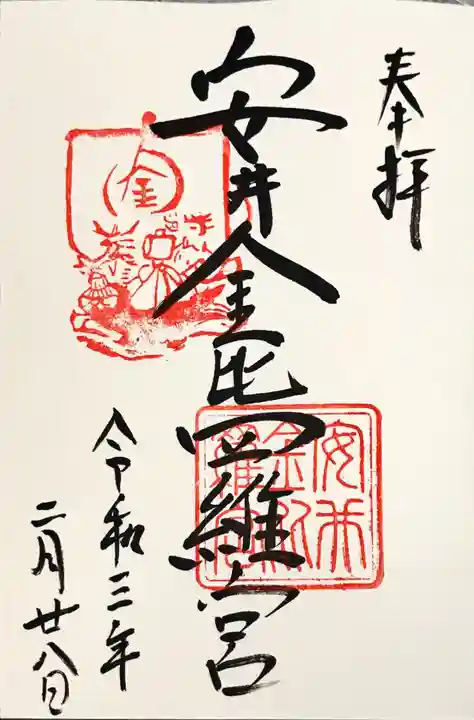 奉拝
安井金毘羅宮
令和三年
二月廿八日
金
安井
金毘
羅宮